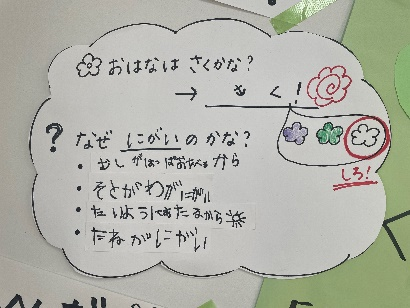 おはなは さくかな?
→ さく!
しろ!
? なぜ にがいの かな?
・むしがはっぱおたべるから
・そとがわがにがい
・たいようにあたるから
・たねがにがい